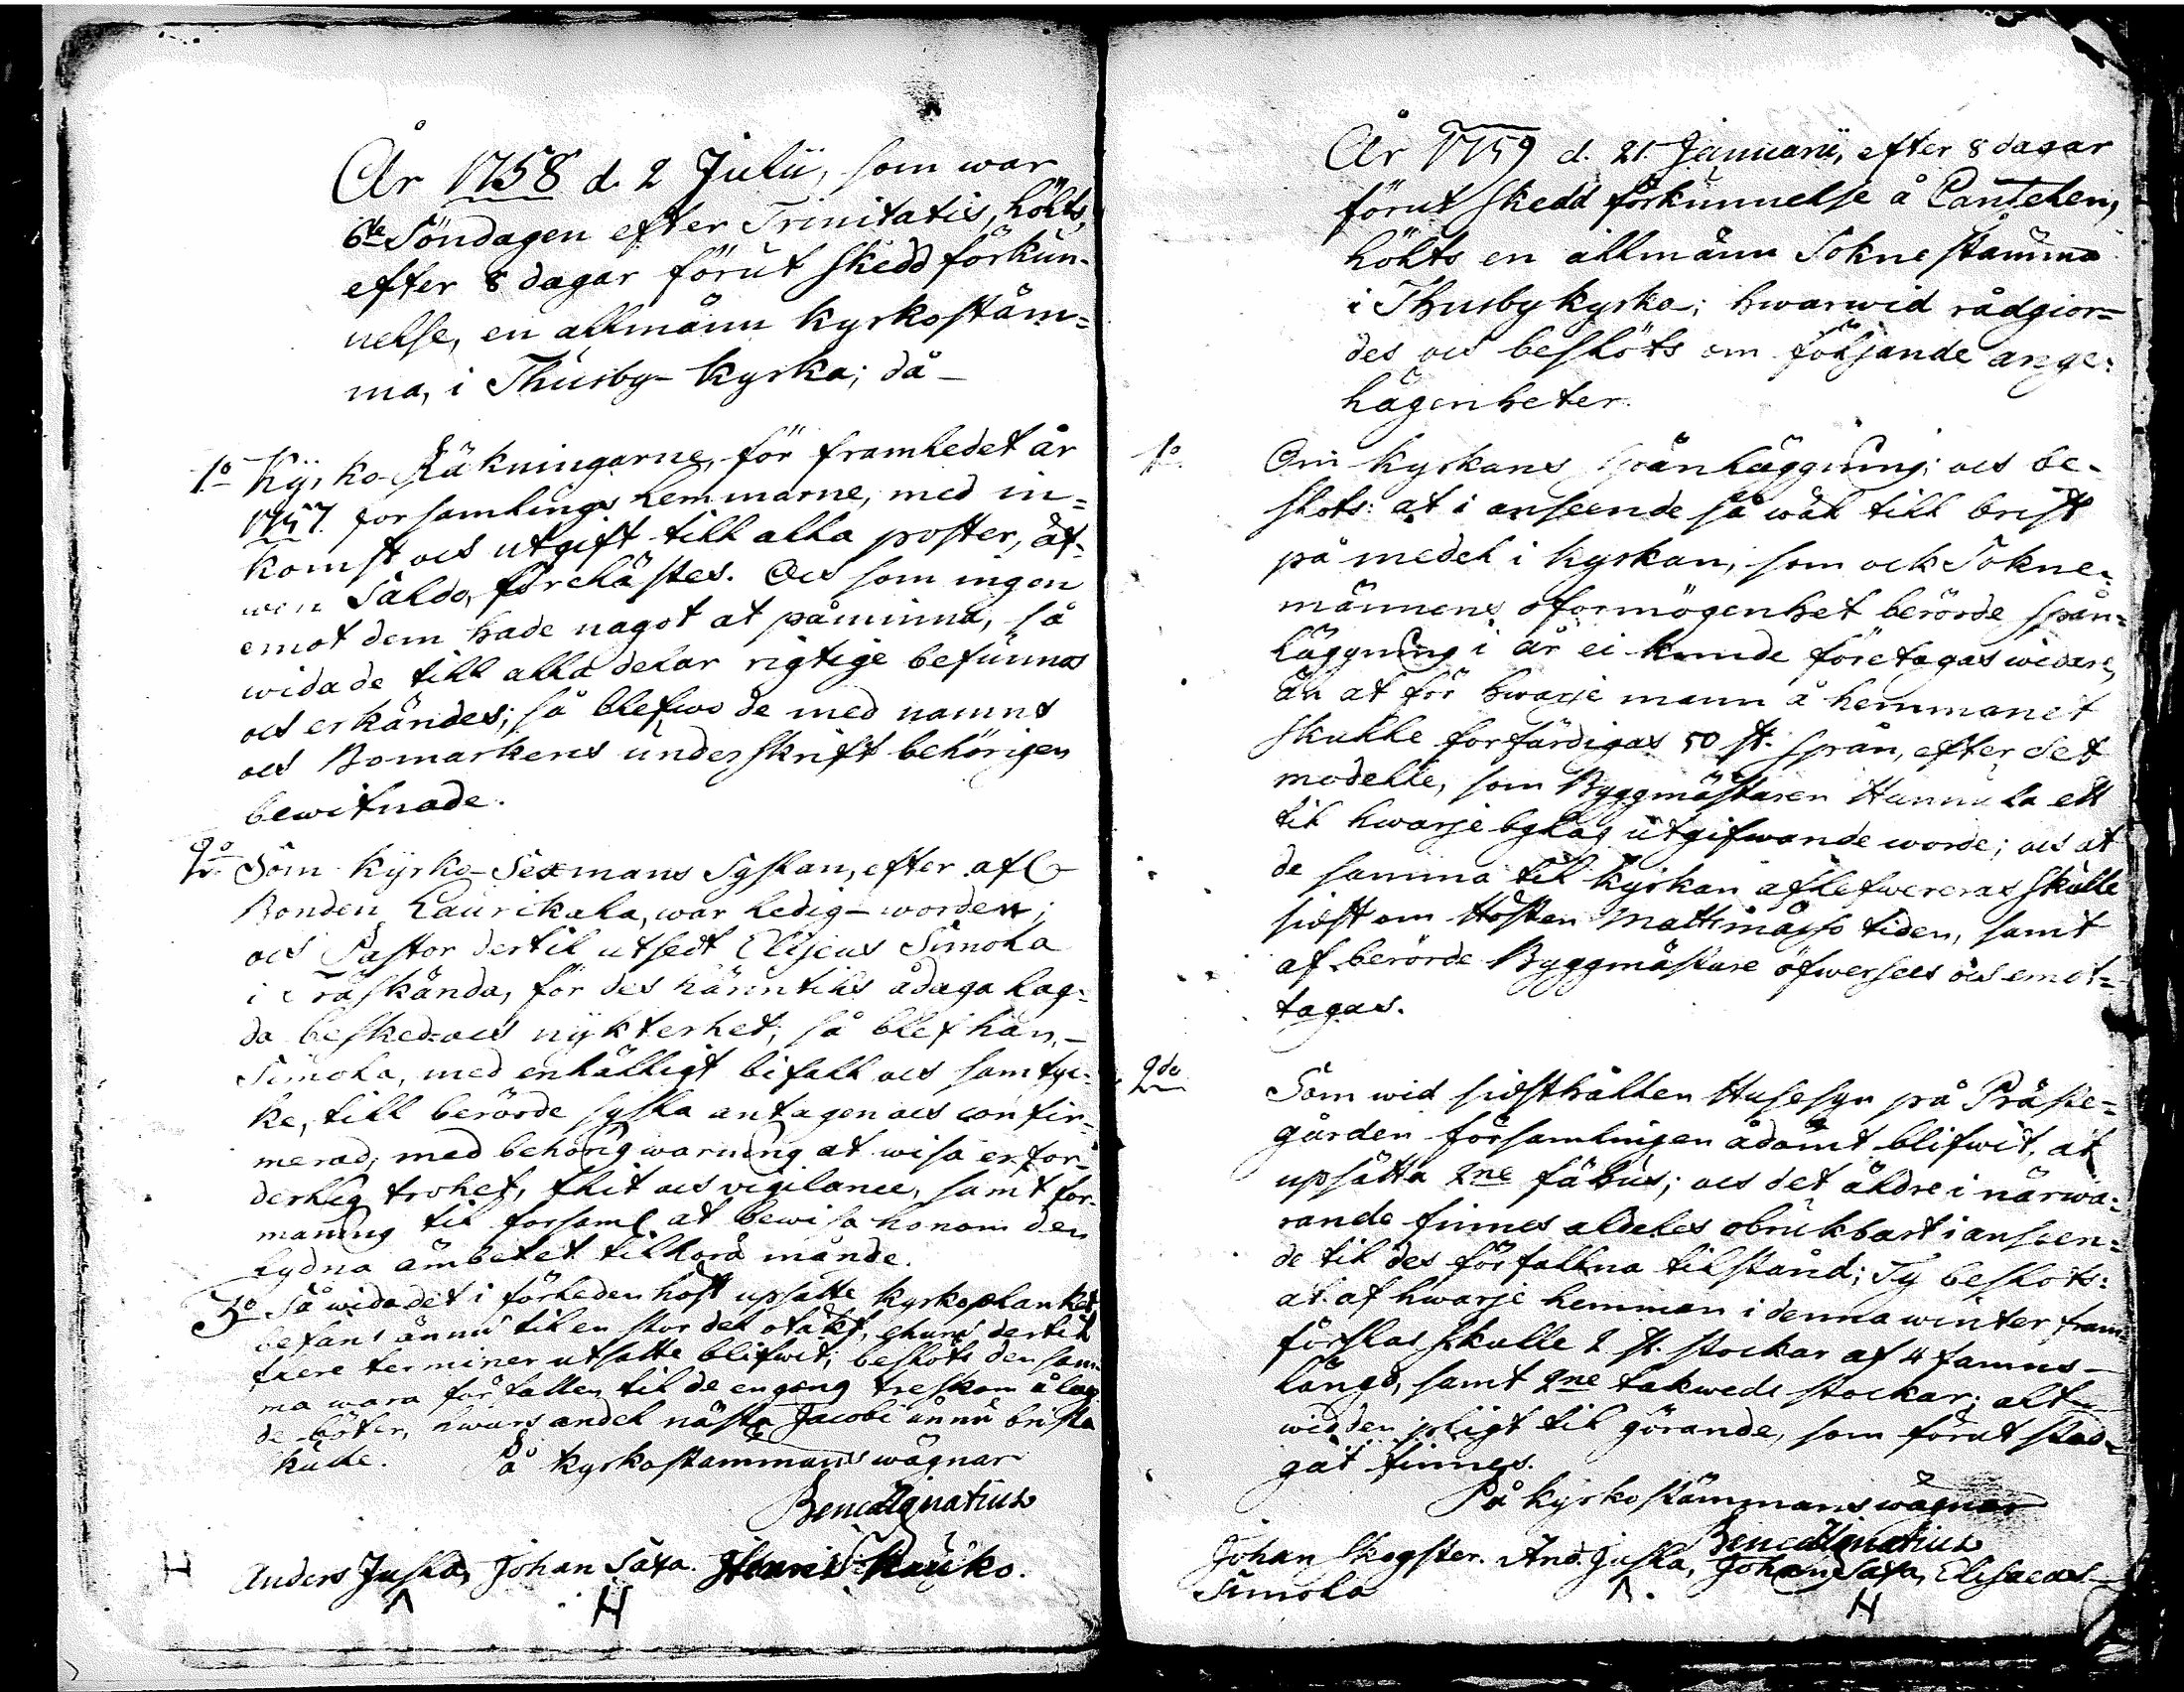 År 1758 d. 2 Julii, som war
6te Söndagen efter Trinitatis, hölts,
efter 8 dagar förut skedd förkun-
nelse, en allmänn kyrkostäm=
ma, i Thusby kyrka; då
1o Kyrko-Räkningarne, för framledet år
1757. församlings lemmarne, med in=
komst och utgift till alla poster, äf-
wen Saldo, förelästes. Och som ingen
emot dem hade nagot at påminna, så
widade till alla delar rigtige befunnos
och erkändes; så blefwo de med namns
och Bomärkens underskrift behörigen
bewitnade.
2o Som kyrko-Sexmans Syslan, efter afl
Bonden Laurikala, war ledig worden;
och Pastor dertil utsedt Elisæus Simola
i Träskända, för des härintils ådagalag-
da besked och nykterhet; så blef han,
Simola, med enhälligt bifall och samtyc-
ke, till berörde sysla antagen och confir-
merad, med behörig warning at wisa erfor-
derlig trohet, flit och vigilance, samt för-
maning til församl at bewisa honom den
lydna ämbetet tilhöra månde.
3o Så wida det i förleden höst upsatte kyrkoplanket,
befans ännu til en stor del otäkt, ehuru dertil
flere terminer utsatte blifwit; beslöts den sam-
ma wara förfallen til de engång treskom ålag-
de böter, hwars andel nästa Jacobi ännu brista
kude. På kyrkostämmans wägnar
Bened Ignatius
Anders Jusla, Johan Saxa. Henric Skauko.
H
År 1759 d. 21. Januarii, efter 8 dagar
förut skedd förkunnelse å Cantzelen,
hölts en allmänn Soknestämma
i Thusby kyrka; hwarwid rådgior=
des och beslöts om följande ange-
lägenheter.
1o. Om kyrkans spånläggning; och be-
slöts: at i anseende så wäl till brist
på medel i kyrkan, som ock Sokne-
männens oförmögenhet berörde spån=
läggning i år ei kunde företagas widare,
än at för hwarje mann å hemmanet
skulle förfärdigas 50 st. spån, efter det
modelle, som Byggmästaren Hannula ett
til hwarje bylag utgifwande worde; och at
de samma til kyrkan aflefwereras skulle
sidst om Hösten Mattsmässo tiden, samt
af berörde Byggmästare öfwersees och emot=
tagas.
2do Som wid sidsthållen Husesyn på Präste=
gården församlingen ådömt blifwit, at
upsätta 2ne fähus; och det äldre i närwa-
rande finnes aldeles obrukbart i anseen=
de til des förfallna tilstånd; Ty beslöts:
at af hwarje hemman i denna winter fram-
förslas skulle 2 st. stockar af 4 famns
längd, samt 2ne takweds stockar; alt
wid den pligt til görande, som förut stad-
gat finnes.
På kyrkostämmans wägnar
Bened Ignatius
Johan Skogster. And. Jusla, Johan Saxa, Elisæus
Simola
H